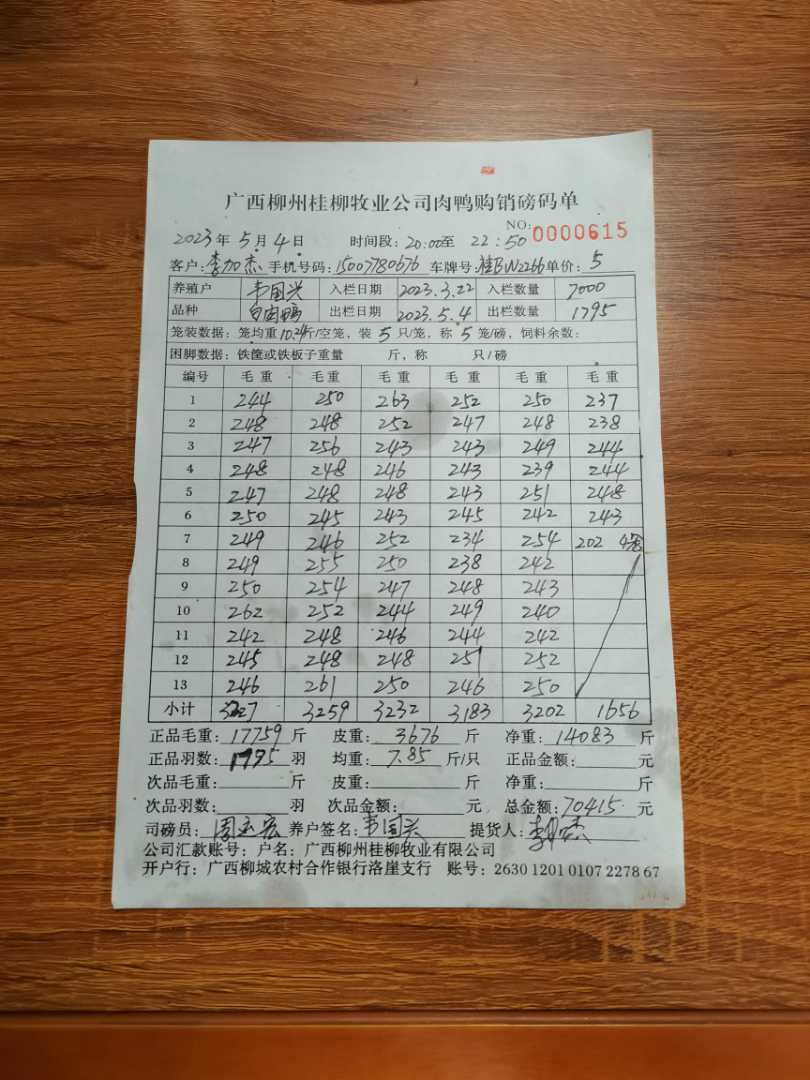 广西柳州桂柳牧业公司肉鸭购销磅码单
NO: 0000615
2023年5月4日 时间段: 20:00至 22:50
客户: 李加杰 手机号码: 15007780676 车牌号: 桂BW2266 单价: 5
养殖户 韦国兴 入栏日期 2023.3.22 入栏数量 7000
品种 出栏日期 2023.5.4 出栏数量 1795
笼装数据: 笼均重10.24斤/空笼, 装 5 只/笼, 称 5 笼/磅, 饲料余数:
困脚数据: 铁筐或铁板子重量 斤, 称 只/磅
编号 毛重 毛重 毛重 毛重 毛重 毛重
1 244 250 263 252 250 237
2 248 248 252 247 248 238
3 247 256 243 243 249 244
4 248 248 246 243 239 244
5 247 248 248 243 251 248
6 250 245 243 245 242 243
7 249 246 252 234 254 202 4笼
8 249 255 250 238 242
9 250 254 247 248 243
10 262 252 244 249 240
11 242 248 246 244 242
12 245 248 248 251 252
13 246 261 250 246 250
小计 3227 3259 3232 3183 3202 1656
正品毛重: 17759 斤 皮重: 3676 斤 净重: 14083 斤
正品羽数: 1795 羽 均重: 7.85 斤/只 正品金额: 元
次品毛重: 斤 皮重: 斤 净重: 斤
次品羽数: 羽 次品金额: 元 总金额: 70415 元
司磅员: 周宏 养户签名: 韦国兴 提货人: 李加杰
公司汇款账号: 户名: 广西柳州桂柳牧业有限公司
开户行: 广西柳城农村合作银行洛崖支行 账号: 2630 1201 0107 2278 67